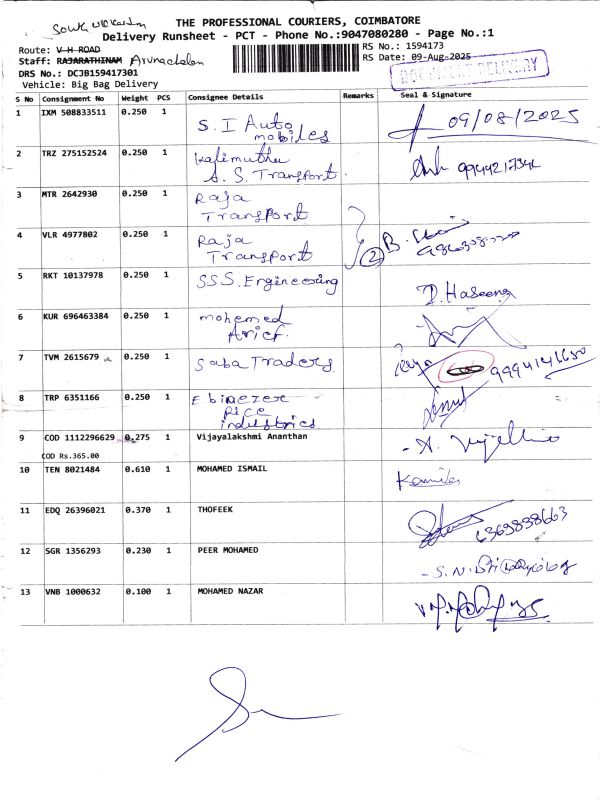 THE PROFESSIONAL COURIERS, COIMBATORE
South
Delivery Runsheet - PCT - Phone No.:9047080280 - Page No.:1
Route: V H ROAD
RS No.: 1594173
Staff: RAJARATHINAM Arunachalam
RS Date: 09-Aug-2025
DOCUMENT DELIVERY
DRS No.: DCJB159417301
Vehicle: Big Bag Delivery
S No Consignment No Weight PCS Consignee Details Remarks Seal & Signature
1 IXM 508833511 0.250 1 S. I Auto mobiles 09/08/2025
2 TRZ 275152524 0.250 1 Kalimuthu A. S. Transport.
3 MTR 2642930 0.250 1 Raja Transport
4 VLR 4977802 0.250 1 Raja Transport 2 B.
5 RKT 10137978 0.250 1 SSS. Engineering D. Haseena
6 KUR 696463384 0.250 1 mohemed Arief.
7 TVM 2615679 0.250 1 Saba Traders 9994141650
8 TRP 6351166 0.250 1 Ebinezer Rice industries
9 COD 1112296629 0.275 1 Vijayalakshmi Ananthan
COD Rs.365.00
10 TEN 8021484 0.610 1 MOHAMED ISMAIL
11 EDQ 26396021 0.370 1 THOFEEK 6369838663
12 SGR 1356293 0.230 1 PEER MOHAMED
13 VNB 1000632 0.100 1 MOHAMED NAZAR